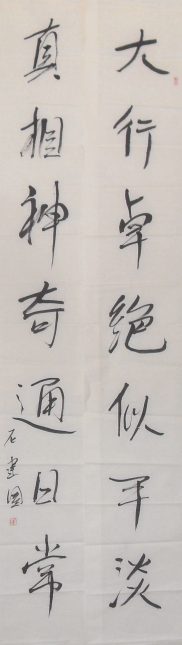 大行卓绝似平淡
真相神奇通日常
石建国